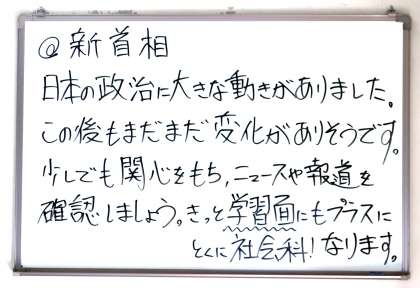 @新首相
日本の政治に大きな動きがありました。
この後もまだまだ変化がありそうです。
少しでも関心をもち,ニュースや報道を
確認しましょう。きっと学習面にもプラスに
とくに社会科!なります。